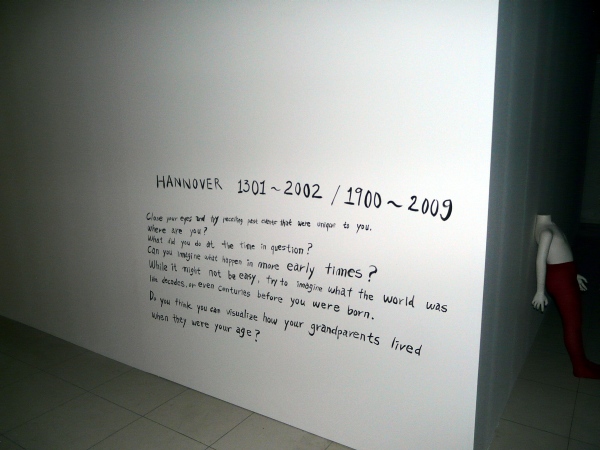 HANNOVER 1301~2002 / 1900~2009
Close your eyes and try recalling past events that were unique to you.
Where are you?
What did you do at the time in question?
Can you imagine what happen in more early times?
While it might not be easy, try to imagine what the world was
like decades, or even centuries before you were born.
Do you think you can visualize how your grandparents lived
when they were your age?